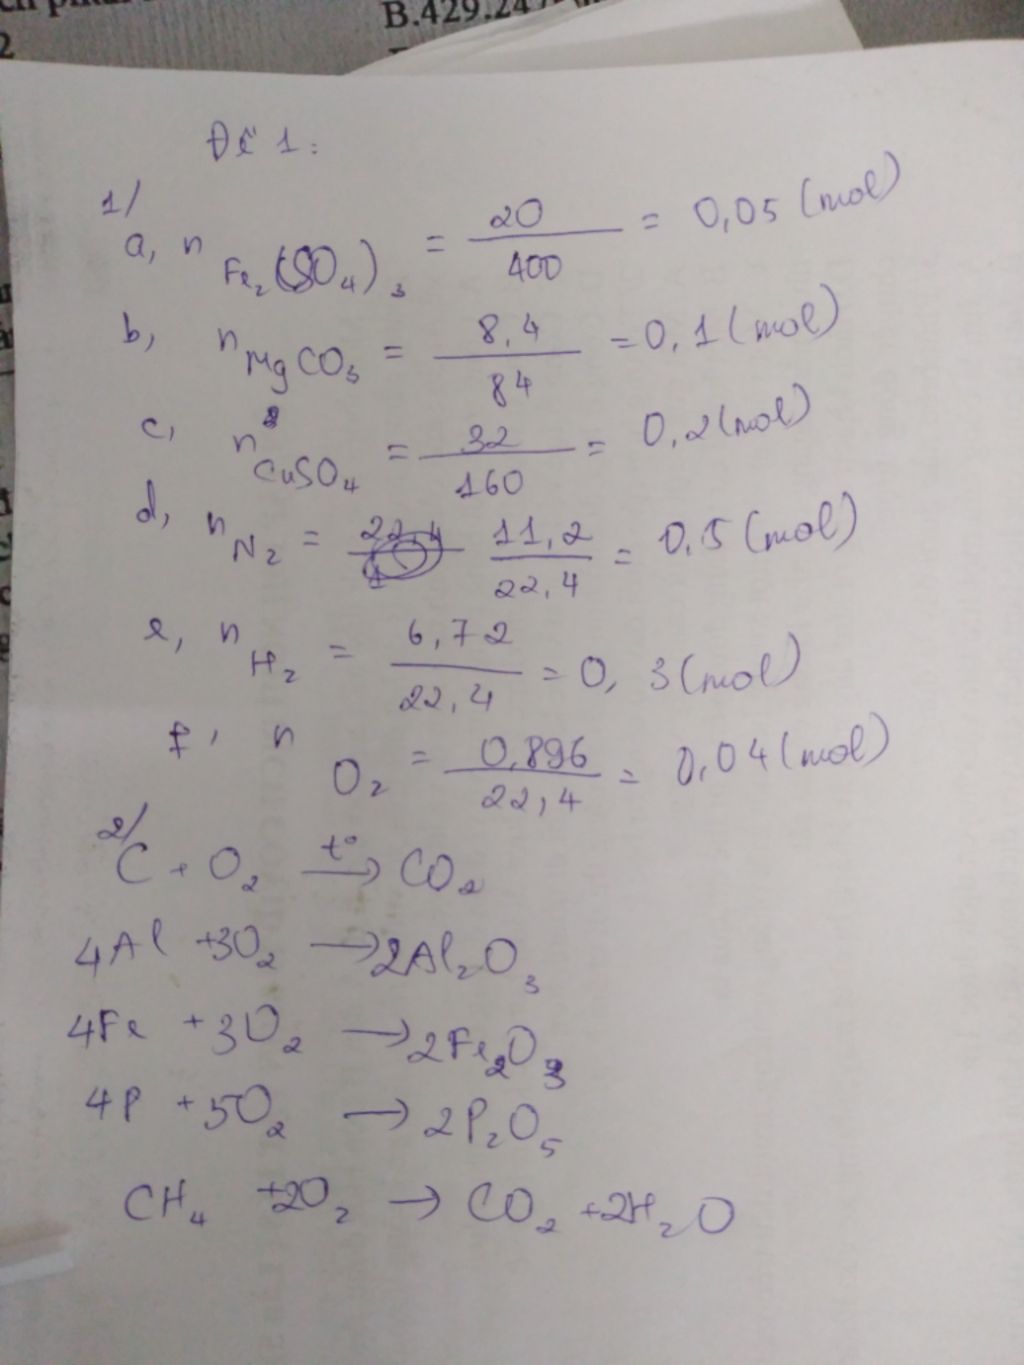 B.429.247
2
Đề 1:
1/
a, n Fe₂(SO₄)₃ = 20/400 = 0,05 (mol)
b, n MgCO₃ = 8,4/84 = 0,1 (mol)
c, n CuSO₄ = 32/160 = 0,2 (mol)
d, n N₂ = 11,2/22,4 = 0,5 (mol)
e, n H₂ = 6,72/22,4 = 0,3 (mol)
f, n O₂ = 0,896/22,4 = 0,04 (mol)
2/
C + O₂ t°→ CO₂
4Al + 3O₂ → 2Al₂O₃
4Fe + 3O₂ → 2Fe₂O₃
4P + 5O₂ → 2P₂O₅
CH₄ + 2O₂ → CO₂ + 2H₂O